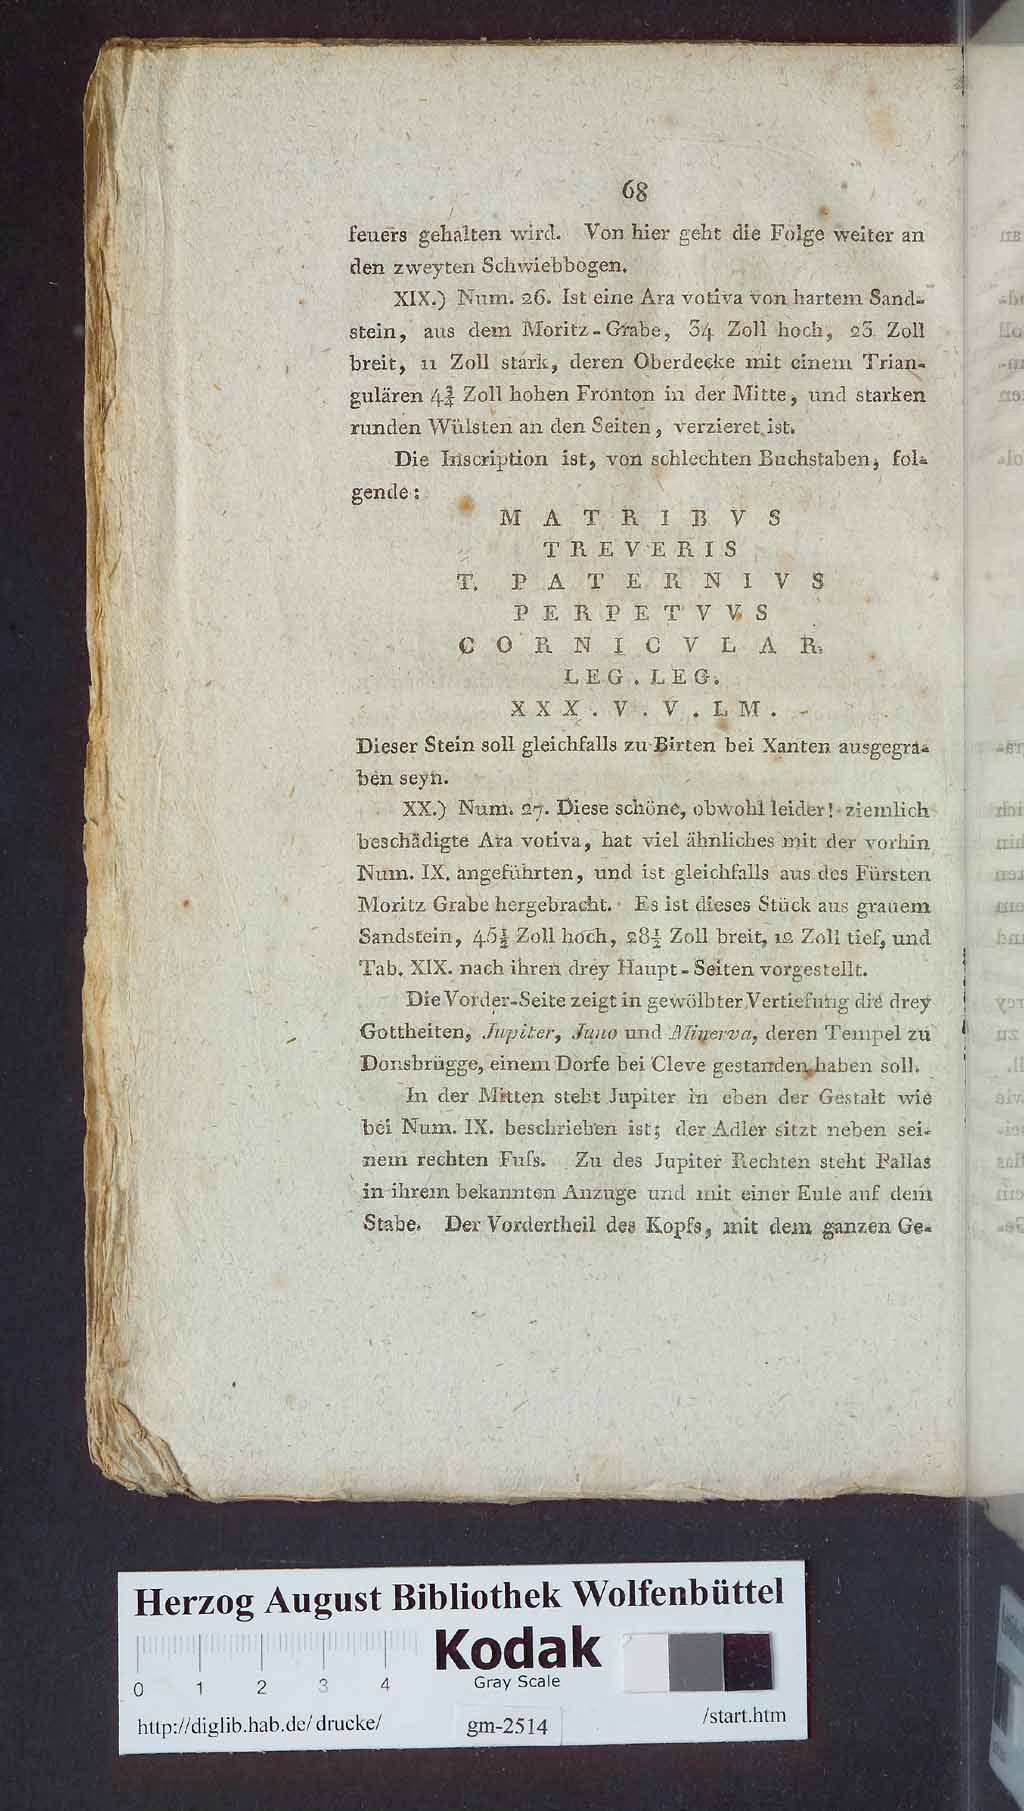 68
feuers gehalten wird. Von hier geht die Folge weiter an
den zweyten Schwiebbogen.
XIX.) Num. 26. Ist eine Ara votiva von hartem Sand-
stein, aus dem Moritz-Grabe, 34 Zoll hoch, 23 Zoll
breit, 11 Zoll stark, deren Oberdecke mit einem Trian-
gulären 4¾ Zoll hohen Fronton in der Mitte, und starken
runden Wülsten an den Seiten, verzieret ist.
Die Inscription ist, von schlechten Buchstaben, fol-
gende:
MATRIBVS
TREVERIS
T. PATERNIVS
PERPETVVS
CORNICVLAR.
LEG. LEG.
XXX. V. V. LM.
Dieser Stein soll gleichfalls zu Birten bei Xanten ausgegra-
ben seyn.
XX.) Num. 27. Diese schöne, obwohl leider! ziemlich
beschädigte Ara votiva, hat viel ähnliches mit der vorhin
Num. IX. angeführten, und ist gleichfalls aus des Fürsten
Moritz Grabe hergebracht. Es ist dieses Stück aus grauem
Sandstein, 45½ Zoll hoch, 28½ Zoll breit, 12 Zoll tief, und
Tab. XIX. nach ihren drey Haupt-Seiten vorgestellt.
Die Vorder-Seite zeigt in gewölbter Vertiefung die drey
Gottheiten, Jupiter, Juno und Minerva, deren Tempel zu
Donsbrügge, einem Dorfe bei Cleve gestanden haben soll.
In der Mitten steht Jupiter in eben der Gestalt wie
bei Num. IX. beschrieben ist; der Adler sitzt neben sei-
nem rechten Fuſs. Zu des Jupiter Rechten steht Pallas
in ihrem bekannten Anzuge und mit einer Eule auf dem
Stabe. Der Vordertheil des Kopfs, mit dem ganzen Ge-
Herzog August Bibliothek Wolfenbüttel
Kodak
Gray Scale
0 1 2 3 4
http://diglib.hab.de/drucke/ gm-2514 /start.htm